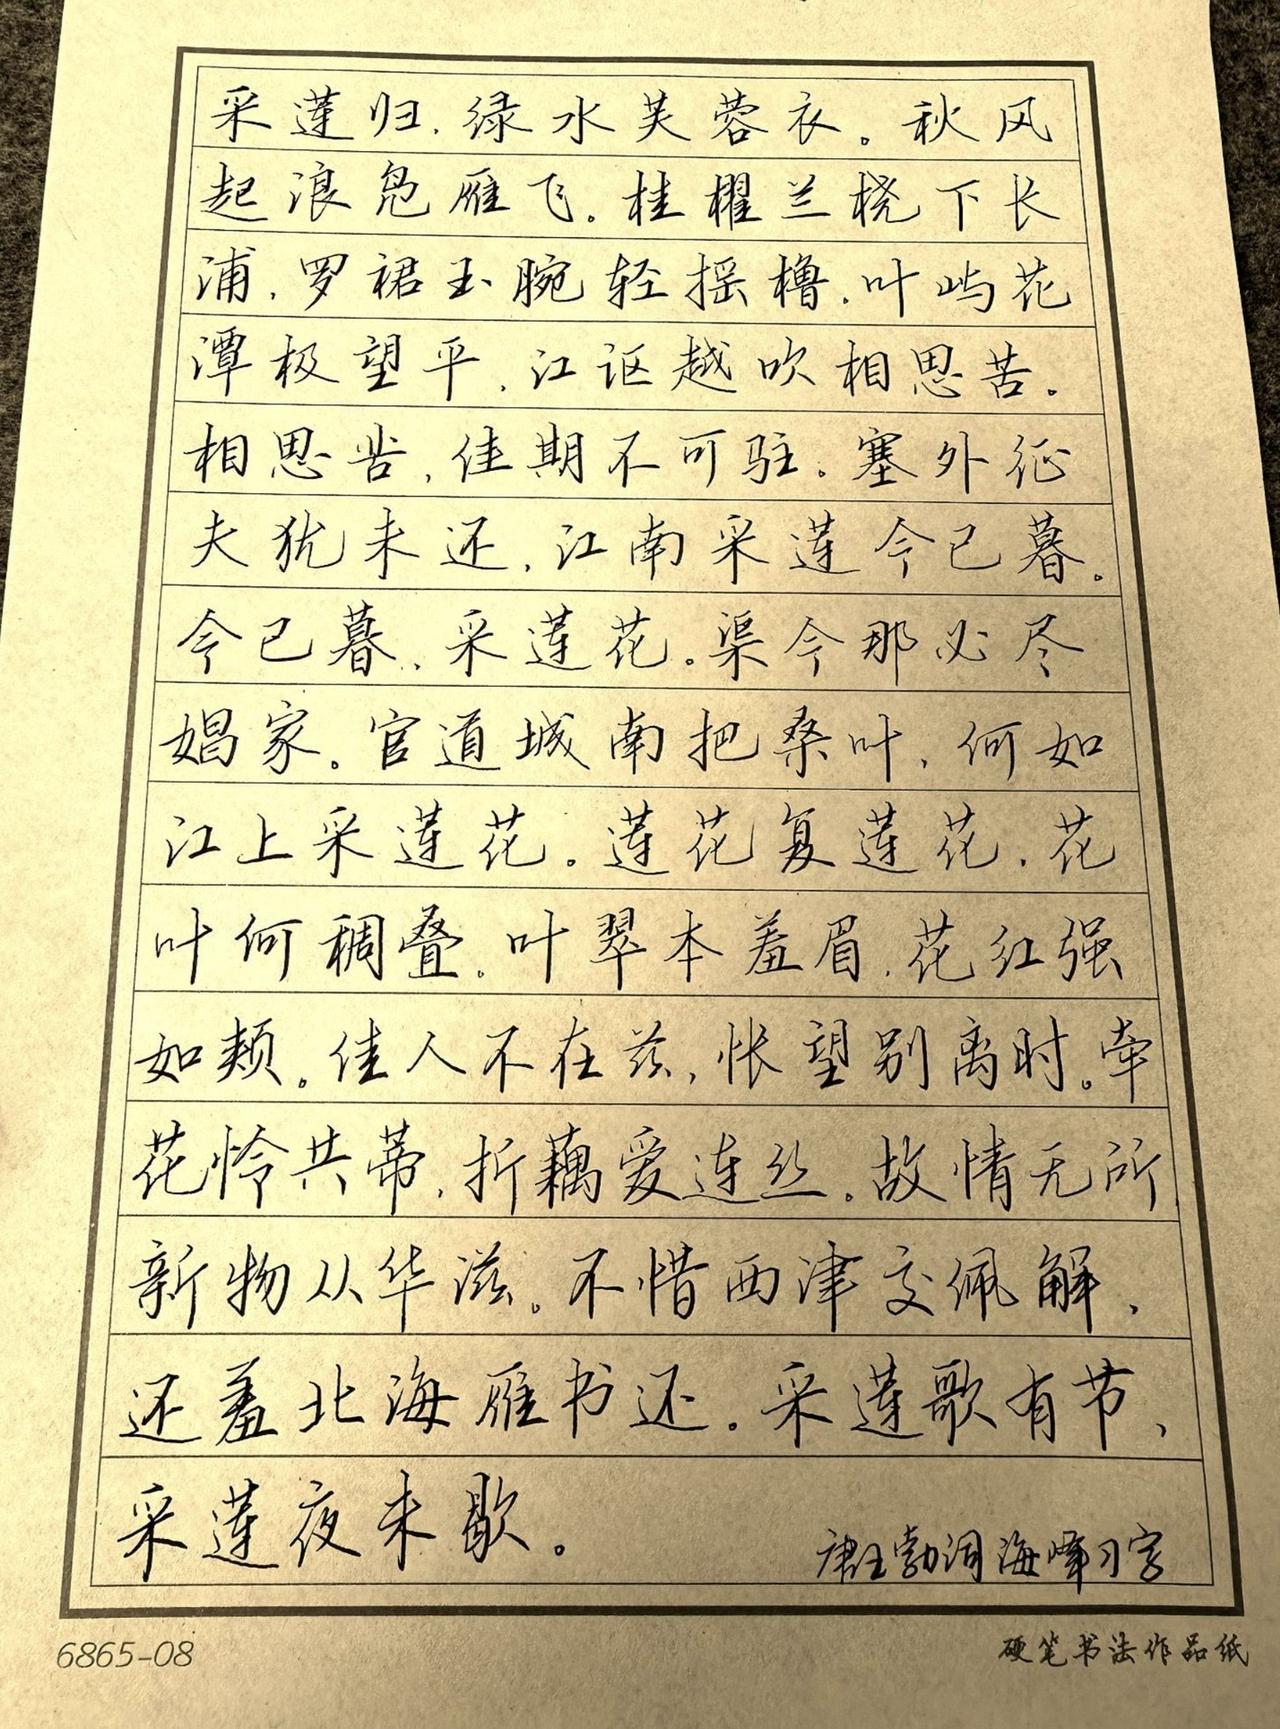 采莲归，绿水芙蓉衣。秋风
起浪凫雁飞。桂櫂兰桡下长
浦，罗裙玉腕轻摇橹，叶屿花
潭极望平，江讴越吹相思苦。
相思苦，佳期不可驻。塞外征
夫犹未还，江南采莲今已暮。
今已暮，采莲花。渠今那必尽
娼家。官道城南把桑叶，何如
江上采莲花。莲花复莲花，花
叶何稠叠。叶翠本羞眉，花红强
如颊。佳人不在兹，怅望别离时。牵
花怜共蒂，折藕爱连丝。故情无所
新物从华滋。不惜西津交佩解，
还羞北海雁书还。采莲歌有节，
采莲夜未歇。
唐王勃词海峰习字
6865-08
硬笔书法作品纸